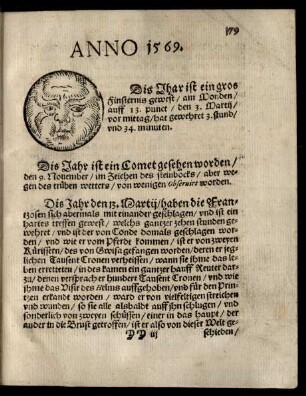 179
ANNO 1569.
Dis Jhar ist ein gros
Finsternis gewest / am Monden /
auff 13. punct / den 3. Martij /
vor mittag / hat gewehret 3. stund /
vnd 34. minuten.
Dis Jahr ist ein Comet gesehen worden /
den 9. November / im Zeichen des steinbocks / aber we-
gen des trüben wetters / von wenigen obseruirt worden.
Dis Jahr den 13. Martij / haben die Fran-
tzosen sich abermals mit einander geschlagen / vnd ist ein
hartes treffen gewest / welchs gantzer zehen stunden ge-
wehret / vnd ist der von Conde damals geschlagen wor-
den / vnd wie er vom Pferd kommen / ist er von zweyen
Kürissern / des von Gwisa gefangen worden / deren er jeg-
lichen Tausent Cronen verheissen / wann sie ihme das le-
ben erretteten / in des kamen ein gantzer hauff Reuter dar-
zu / denen versprach er hundert Tausent Cronen / vnd wie
ihme das Visir des Helms auffgehoben / vnd für den Prin-
tzen erkant worden / ward er von vielfeltigen streichen
vnd wunden / so sie alle alsbaldt auff jhn schlugen / vnd
sonderlich von zweyen schüssen / einer in das haupt / der
ander in die Brust getroffen / ist er also von dieser Welt ge-
DD iij
schieden /